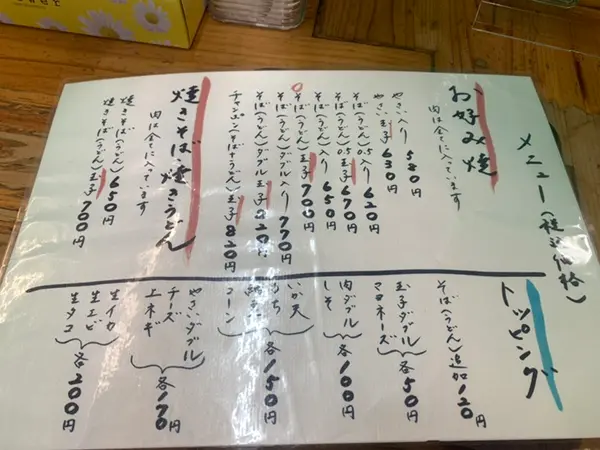 メニュー(税込価格)
お好み焼
肉は全てに入っています
やさい入り 580円
やさい玉子 630円
そば(うどん)0.5入 620円
そば(うどん)0.5玉子 670円
そば(うどん)入り 650円
そば(うどん)玉子 700円
そば(うどん)ダブル入り 770円
そば(うどん)ダブル玉子 820円
チャンポン(そば+うどん)玉子 820円
焼きそば・焼きうどん
肉は全てに入っています
焼きそば(うどん) 650円
焼きそば(うどん)玉子 700円
トッピング
そば(うどん)追加 120円
玉子ダブル
マヨネーズ
各50円
肉ダブル
しそ
各100円
いか天
もち
納豆
コーン
各150円
やさいダブル
チーズ
上ネギ
各170円
生イカ
生エビ
生タコ
各200円